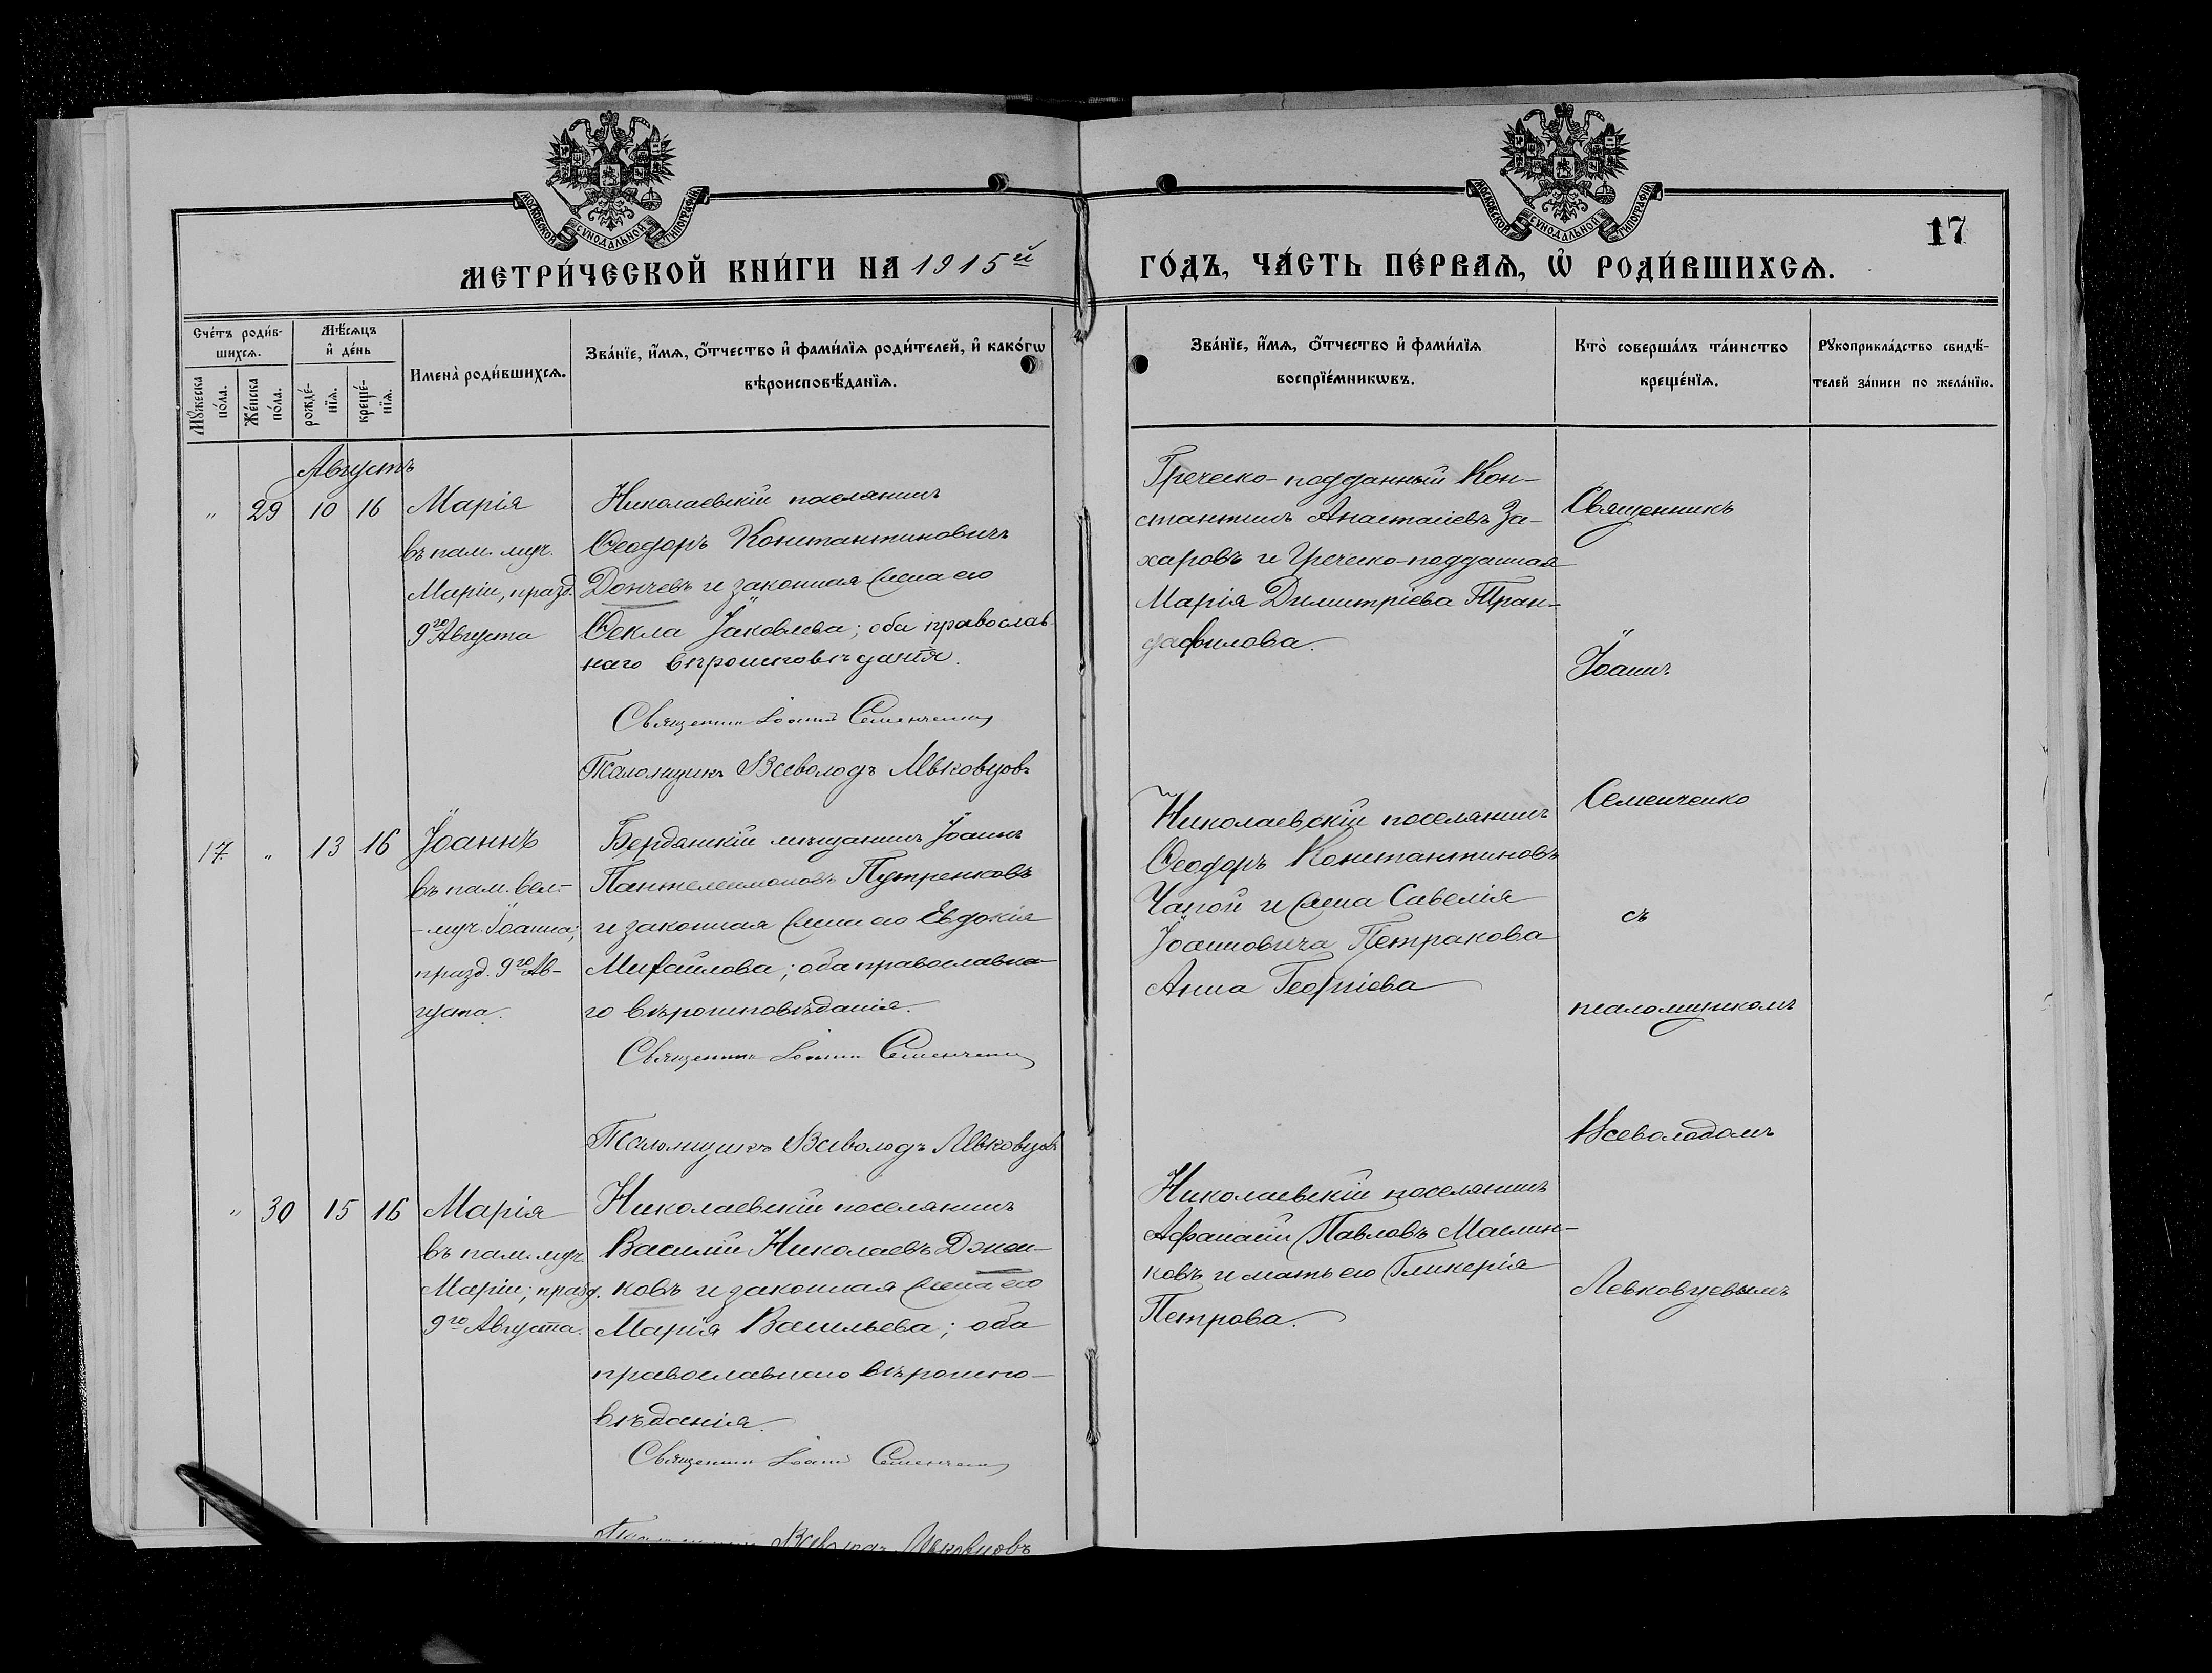 МОСКОВСКОЙ СУНОДАЛЬНОЙ ТИПОГРАФІИ
МОСКОВСКОЙ СУНОДАЛЬНОЙ ТИПОГРАФІИ
17
МЕТРИ́ЧЕСКОЙ КНИ́ГИ НА 1915й
ГО́ДЪ, ЧА́СТЬ ПЕ́РВАѦ, Ѡ҆ РОДИ́ВШИХСѦ.
Сче́тъ роди́в-
шихсѧ.
Мꙋ́жеска
по́ла.
Же́нска
по́ла.
Мѣ́сѧцъ
и҆ де́нь
рожде́-
нїѧ.
креще́-
нїѧ.
Имена̀ роди́вшихсѧ.
Зва́нїе, и҆́мѧ, ѻ҆́тчество и҆ фами́лїѧ роди́телей, и҆ како́гѡ
вѣроисповѣ́данїѧ.
Зва́нїе, и҆́мѧ, ѻ҆́тчество и҆ фами́лїѧ
воспрїе́мникѡвъ.
Кто̀ соверша́лъ та́инство
креще́нїѧ.
Рꙋкоприкла́дство свидѣ́-
телей за́писи по жела́нїю.
Августъ
" 29 10 16
Марія
въ пам. муч.
Маріи, празд.
9го Августа
Николаевскій поселянинъ
Ѳеодоръ Константиновичъ
Дончевъ и законная жена его
Ѳекла Іаковлева; оба православ-
наго вѣроисповѣданія.
Священник Іоанн Семенченко
Псаломщикъ Всеволодъ Левковцовъ
Греческо-подданный Кон-
стантинъ Анастасіевъ За-
харовъ и Греческо-подданная
Марія Димитріева Тран-
дафилова.
Священникъ
Іоаннъ
Семенченко
съ
псаломщикомъ
Всеволодомъ
Левковцевымъ
17 " 13 16
Іоаннъ
въ пам. вел-
-муч. Іоанна;
празд. 9го Ав-
густа.
Бердянскій мѣщанинъ Іоаннъ
Пантелеимоновъ Путренковъ
и законная жена его Евдокія
Михайлова; оба православна-
го вѣроисповѣданія.
Священник Іоанн Семенченко
Псаломщикъ Всеволодъ Левковцовъ
Николаевскій поселянинъ
Ѳеодоръ Константиновъ
Чапой и жена Савелія
Іоанновича Петракова
Анна Георгіева
" 30 15 16
Марія
въ пам. муч.
Маріи; празд.
9го Августа.
Николаевскій поселянинъ
Василій Николаевъ Джен-
ковъ и законная жена его
Марія Васильева; оба
православнаго вѣроиспо-
вѣданія.
Священник Іоанн Семенченко
Псаломщикъ Всеволодъ Левковцовъ
Николаевскій поселянинъ
Афанасій Павловъ Маслин-
ковъ и мать его Гликерія
Петрова.